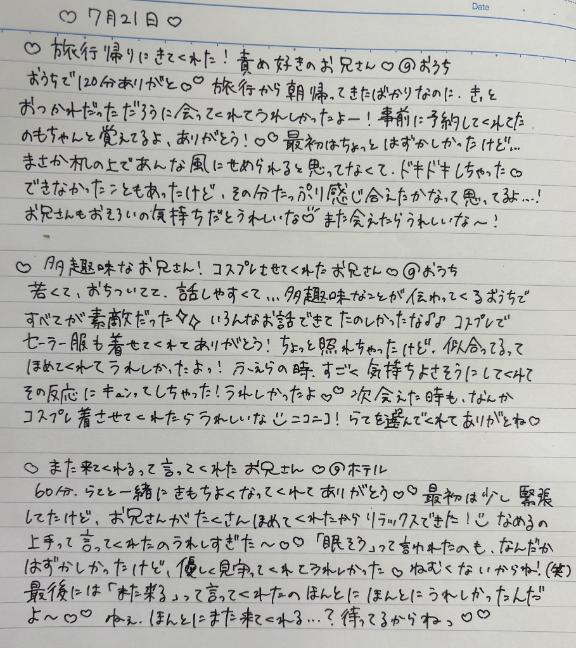 Date
♡ 7月21日 ♡
♡ 旅行帰りにきてくれた! 責め好きのお兄さん♡@おうち
おうちで120分ありがと♡♡ 旅行から朝帰ってきたばかりなのに、きっと
おつかれだっただろうに会ってくれてうれしかったよー! 事前に予約してくれてた
のもちゃんと覚えてるよ、ありがとう!♡♡ 最初はちょっとはずかしかったけど…
まさか机の上であんな風にせめられると思ってなくて、ドキドキしちゃった♡
できなかったこともあったけど、その分たっぷり感じ合えたかなって思ってるよ…!
お兄さんもおそろいの気持ちだとうれしいな♡ また会えたらうれしいな〜!
♡ 多趣味なお兄さん! コスプレさせてくれたお兄さん♡@おうち
若くて、おちついてて、話しやすくて…多趣味なことが伝わってくるおうちで
すべてが素敵だった✧✧ いろんなお話できてたのしかったな♪♪ コスプレで
セーラー服も着せてくれてありがとう! ちょっと照れちゃったけど、似合ってるって
ほめてくれてうれしかったよっ! ふぇらの時、すごく気持ちよさそうにしてくれて
その反応にキュンってしちゃった! うれしかったよ♡♡ 次会えた時も、なんか
コスプレ着させてくれたらうれしいな ニコニコ! らてを選んでくれてありがとね♡
♡ また来てくれるって言ってくれたお兄さん ♡@ホテル
60分、らてと一緒にきもちよくなってくれてありがとう♡♡ 最初は少し緊張
してたけど、お兄さんがたくさんほめてくれたからリラックスできた! なめるの
上手って言ってくれたのうれしすぎた〜♡♡ 「眠そう」って言われたのも、なんだか
はずかしかったけど、優しく見守ってくれてうれしかった♡ ねむくないからね!(笑)
最後には「また来る」って言ってくれたのほんとにほんとにうれしかったんだ
よ〜♡♡ ねぇ、ほんとにまた来てくれる…? 待ってるからねっ♡♡